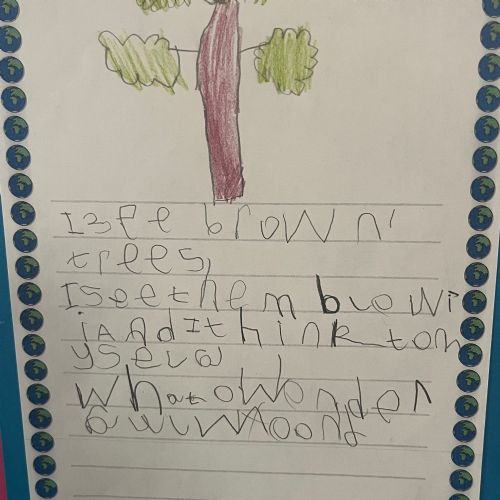 I see brown
trees,
I see them blowi
And I think to m
yself
What a Wonder